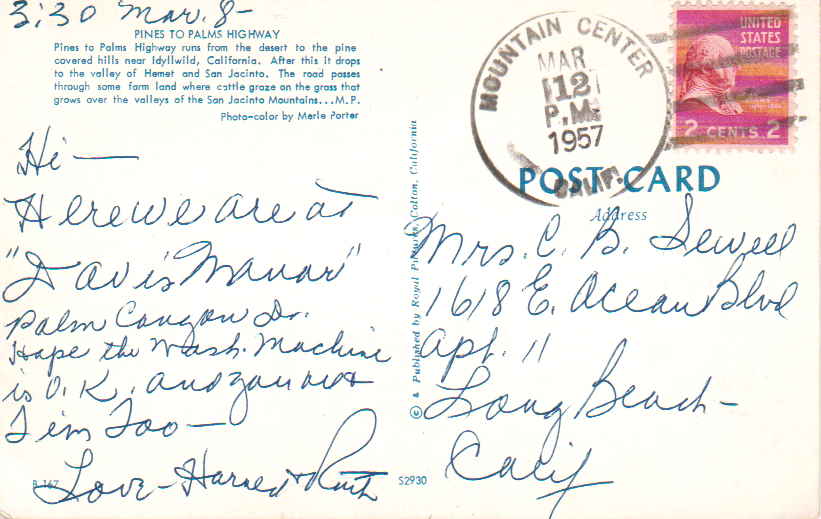 3:30 Mar. 8-
PINES TO PALMS HIGHWAY
Pines to Palms Highway runs from the desert to the pine
covered hills near Idyllwild, California. After this it drops
to the valley of Hemet and San Jacinto. The road passes
through some farm land where cattle graze on the grass that
grows over the valleys of the San Jacinto Mountains...M.P.
Photo-color by Merle Porter
Hi —
Here we are at
"Davis Manor"
Palm Canyon Dr.
Hope the Wash. Machine
is O.K. and you are
Jim Too —
Love - Harred & Ruth
B-167
S2930
© & Published by Royal Pictures, Colton, California
MOUNTAIN CENTER
MAR
12
P.M.
1957
CALIF.
UNITED
STATES
POSTAGE
2 CENTS 2
POST CARD
Address
Mrs. C. B. Sewell
1618 E. Ocean Blvd
Apt. 11
Long Beach -
Calif